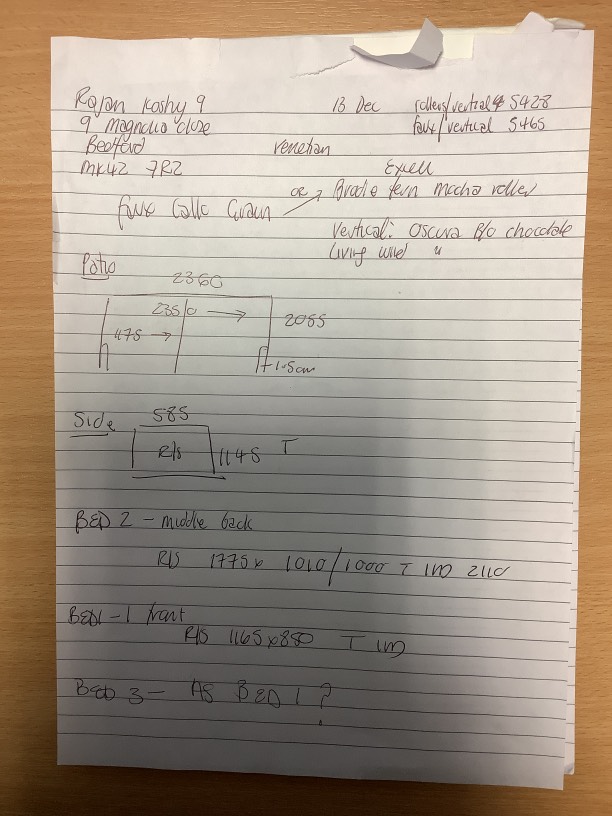 Rajan Koshy 9
13 Dec rollers/vertical £5428
9 magnolia close
faux/vertical 5465
Bedford
venetian
MK42 7RZ
Excell
faux Calic Grain
or → Brodie fern mocha roller
Vertical: Oscura B/o chocolate
living wind "
Patio
2360
2350 →
475 →
2055
+1.5cm
Side
585
R/S
1145 T
BED 2 - middle back
R/S 1775 x 1010/1000 T 1M 2110
BED1 - 1 front
R/S 1165 x 880 T 1M
BED 3 - AS BED 1 ?